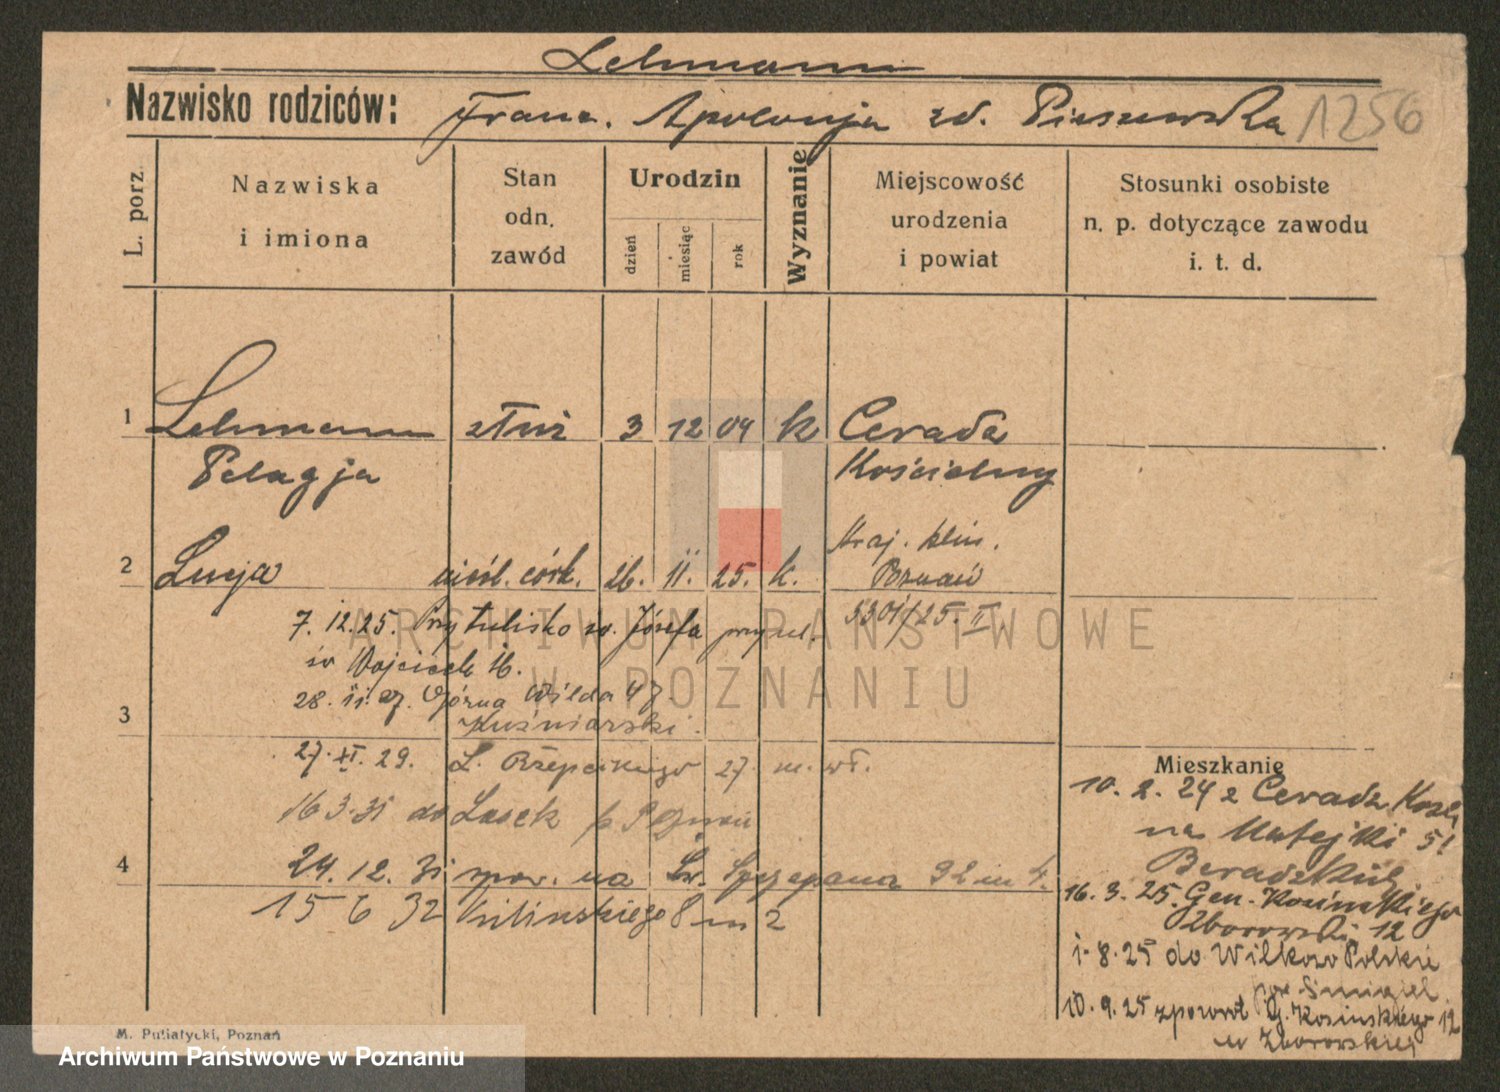 Lehmann
Nazwisko rodziców: Franc. Apolonja zd. Pieszewska 1256
L. porz.
Nazwiska i imiona
Stan odn. zawód
Urodzin
dzień
miesiąc
rok
Wyznanie
Miejscowość urodzenia i powiat
Stosunki osobiste n. p. dotyczące zawodu i. t. d.
1 Lehmann służ 3 12 04 k Ceradz
Pelagja Kościelny
Kraj. klin.
2 Lucja nieśl. córk. 26. 11. 25. k. Poznań
7. 12. 25. Przytulisko św. Józefa przy ul. 5301/25. II
św Wojciech 16.
28. 11. 27. Górna Wilda 47.
3 Kuśniarski.
27. XI. 29. L. Rzepeckiego 27. m. wł.
Mieszkanie
16 3. 31 do Lasek p Poznań
10. 2. 24 z Ceradz Kośc
na Matejki 51
4 24. 12. 31 spow. na Św. Szczepana 92 m 4.
15 6 32 Kilińskiego 8 m 2
16. 3. 25. Gen. Kosińskiego
Zborowski 12
1. 8. 25 do Wilkowo Polskie
pow Śmigiel
10. 9. 25 zpowrot G. Kosińskiego 12
u Zborowskiej
M. Putiatycki, Poznań
ARCHIWUM PAŃSTWOWE
W POZNANIU
Archiwum Państwowe w Poznaniu